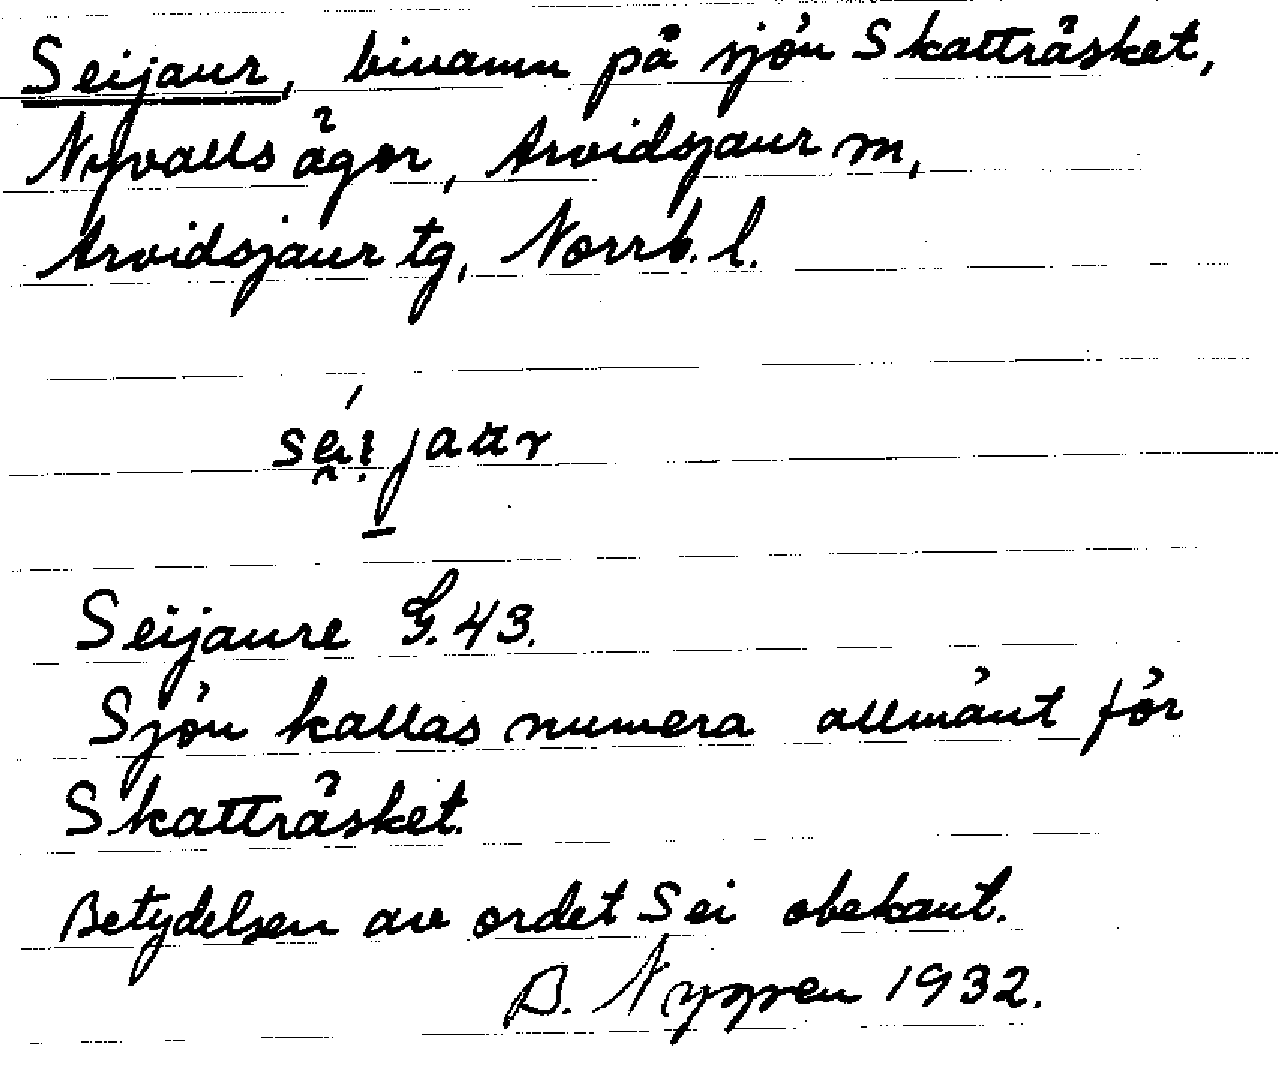 Seijaur, binamn på sjön Skatträsket,
Nyvalls ägor, Arvidsjaur m,
Arvidsjaur tg, Norrb. l.
séi̯jaur
Seijaure G. 43.
Sjön kallas numera allmänt för
Skatträsket.
Betydelsen av ordet Sei obekant.
B. Nygren 1932.